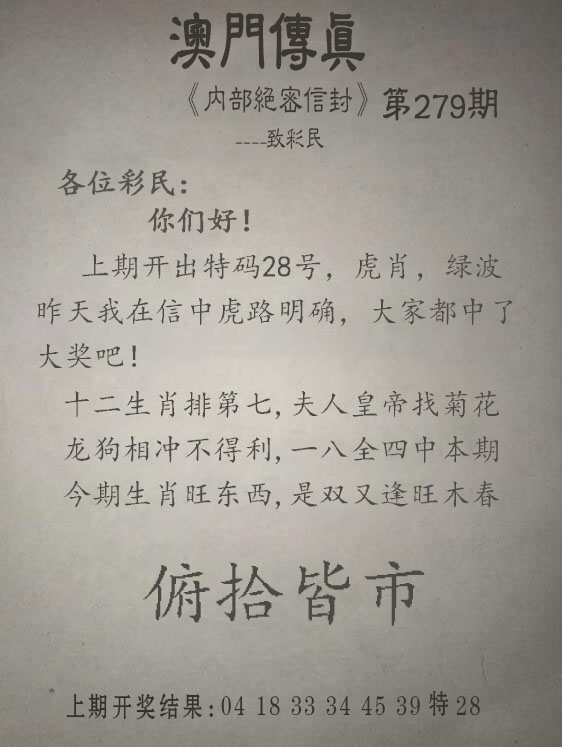 澳門傳真
《内部絕密信封》第279期
----致彩民
各位彩民:
你们好!
上期开出特码28号，虎肖，绿波
昨天我在信中虎路明确，大家都中了
大奖吧!
十二生肖排第七,夫人皇帝找菊花
龙狗相冲不得利,一八全四中本期
今期生肖旺东西,是双又逢旺木春
俯拾皆市
上期开奖结果:04 18 33 34 45 39 特28